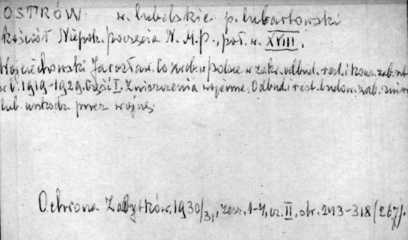 OSTRÓW w. lubelskie p. lubartowski
kościół Niepok. poczęcia N. M. P., poł. w. XVIII.
Wojciechowski Jarosław. Co zrob. w Polsce w zakr. odbud. rest. i kons. zab. szt.
w l. 1919-1929. Część I. Zniszczenia wojenne. Odbud. i rest. budow. zab. zniszcz.
lub. uszkodz. przez wojnę
Ochrona Zabytków, 1930/31, zesz. 1-4, cz. II, str. 243-318 (267).